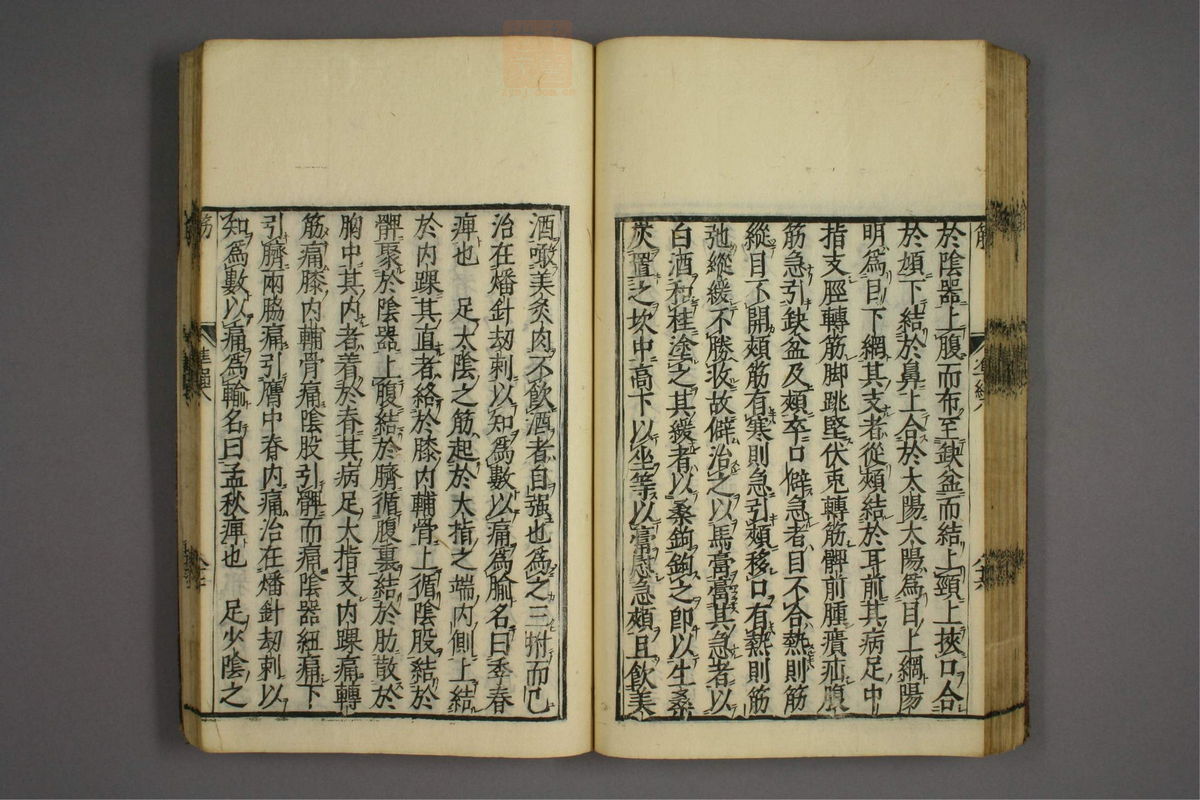 於陰器上腹而布至缺盆而結上頸上挾口合
於頄下結於鼻上合於太陽太陽爲目上綱陽
明爲目下綱其支者從頰結於耳前其病足中
指支脛轉筋脚跳堅伏兎轉筋髀前腫㿉疝腹
筋急引缺盆及頰卒口僻急者目不合熱則筋
縱目不開頰筋有寒則急引頰移口有熱則筋
弛縱緩不勝收故僻治之以馬膏膏其急者以
白酒和桂塗之其緩者以桑鉤鉤之即以生桑
炭置之坎中高下以坐等以膏熨急頰且飲美
酒噉美炙肉不飲酒者自强也爲之三拊而已
治在燔針劫刺以知爲數以痛爲腧名曰季春
痺也　足太陰之筋起於大指之端內側上結
於內踝其直者絡於膝內輔骨上循陰股結於
髀聚於陰器上腹結於臍循腹裏結於肋散於
胸中其內者着於脊其病足大指支內踝痛轉
筋痛膝內輔骨痛陰股引髀而痛陰器紐痛下
引臍兩脇痛引膺中脊內痛治在燔針劫刺以
知爲數以痛爲輸名曰孟秋痺也　足少陰之